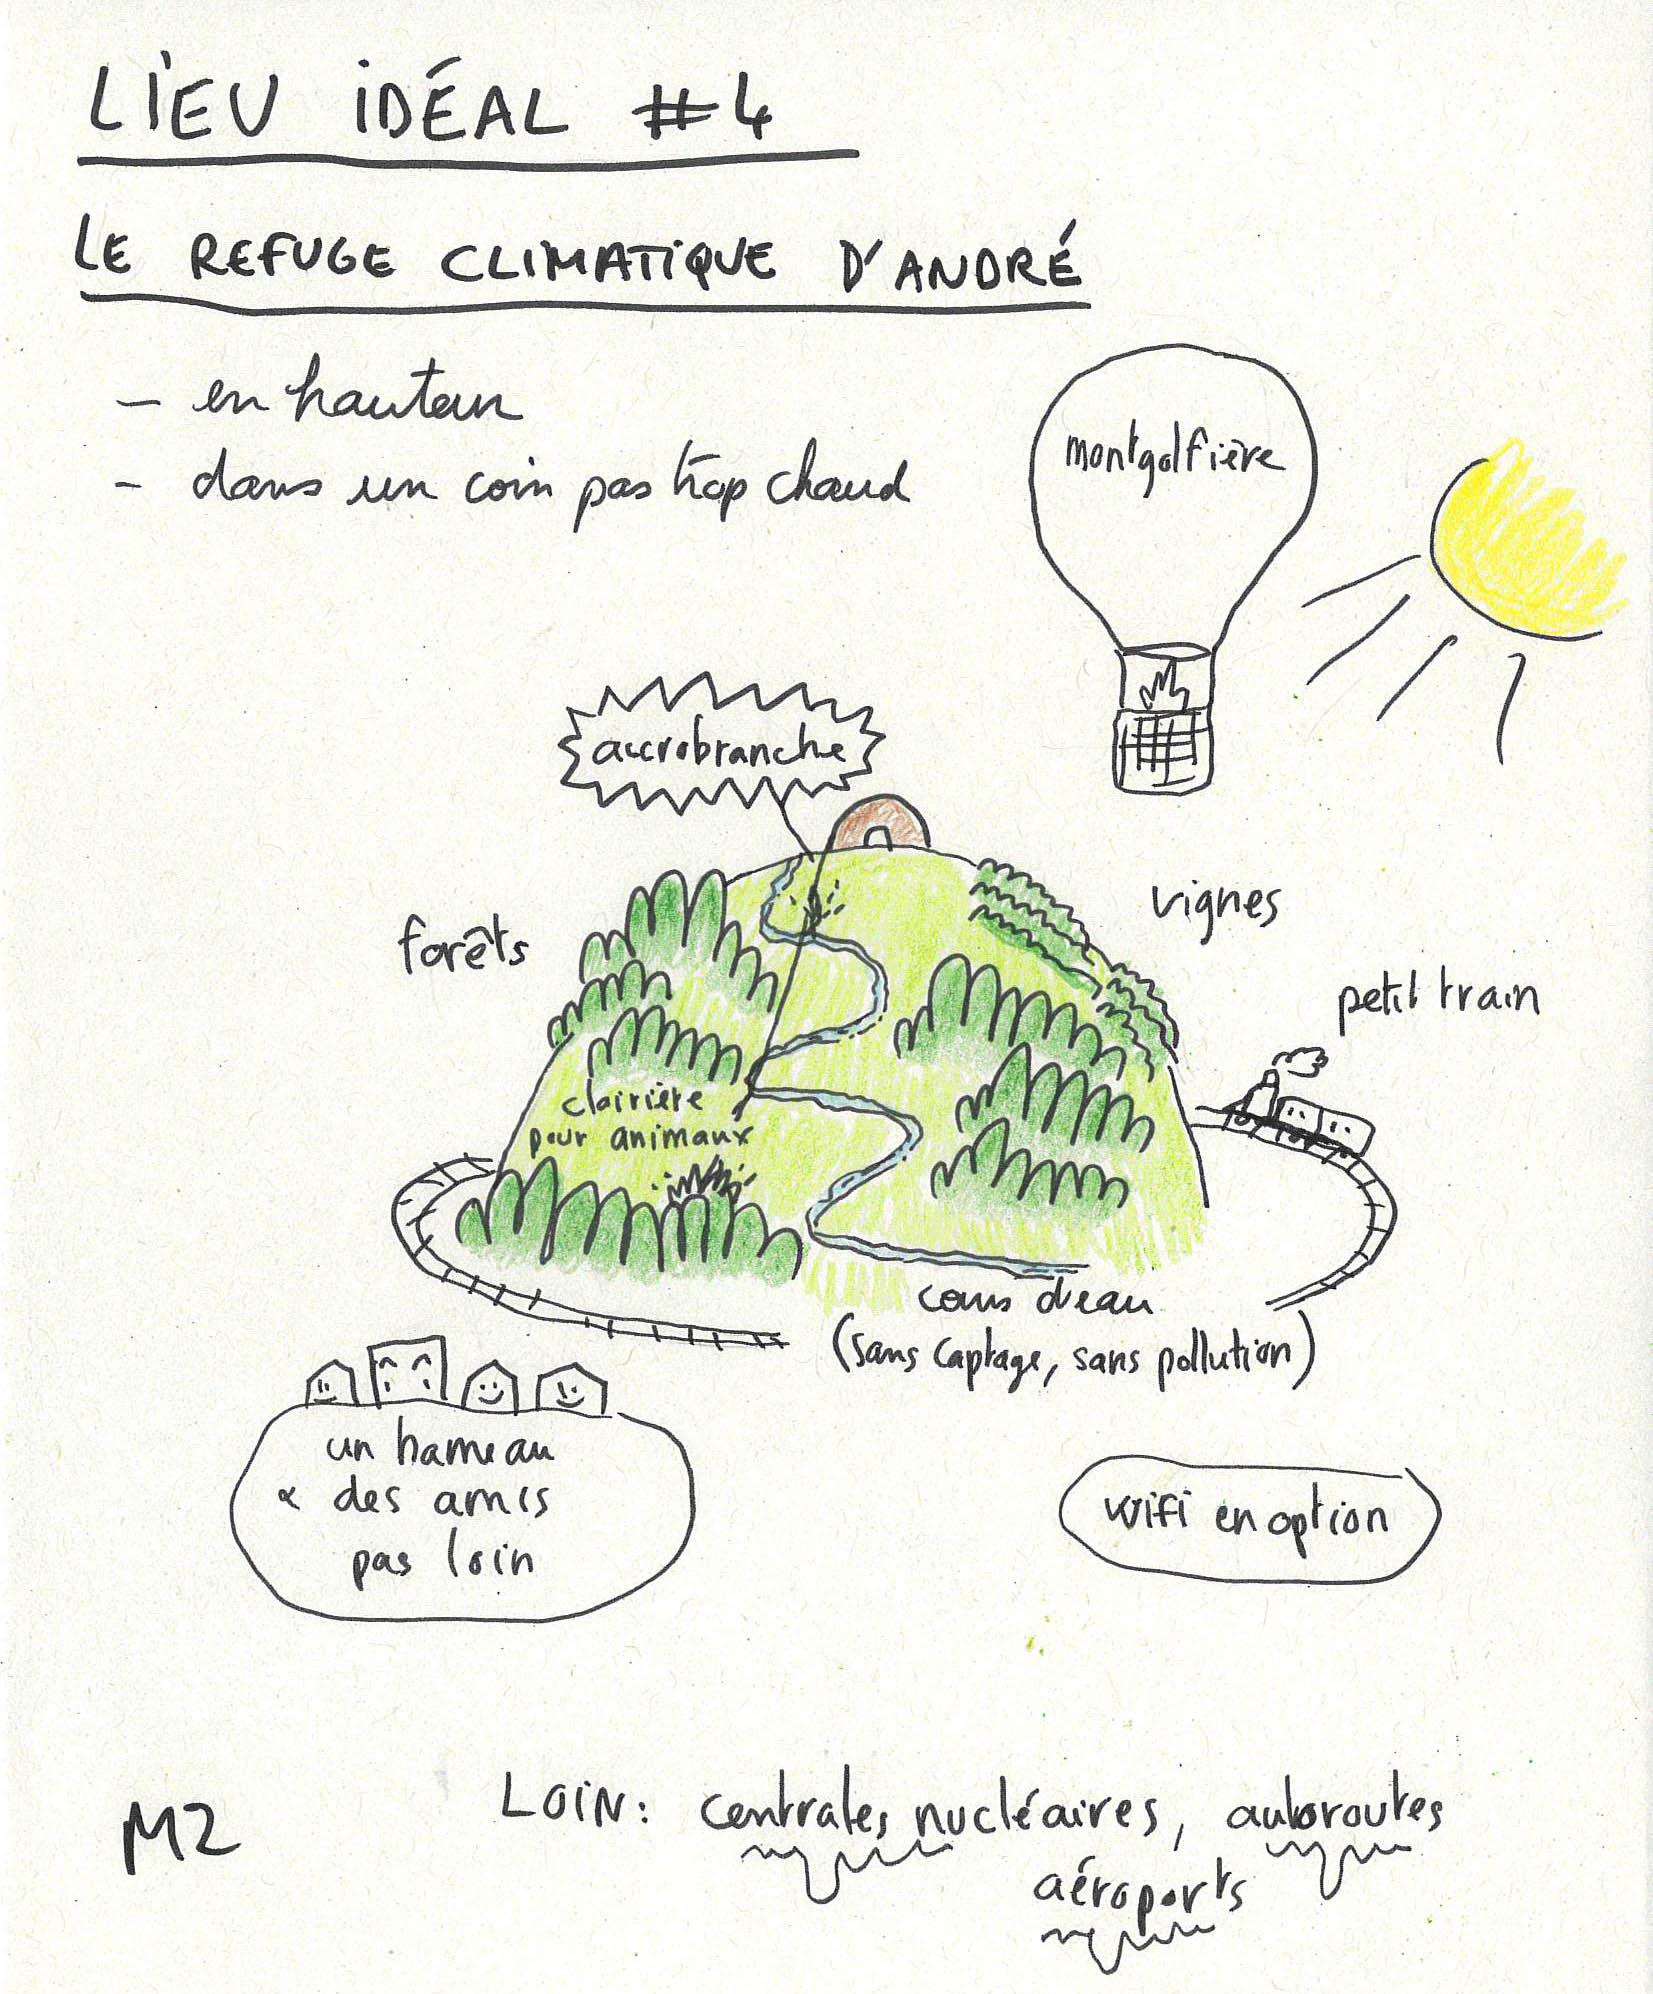 LIEU IDÉAL #4
LE REFUGE CLIMATIQUE D'ANDRÉ
– en hauteur
– dans un coin pas trop chaud
montgolfière
accrobranche
vignes
forêts
petit train
clairière
pour animaux
cours d'eau
(sans captage, sans pollution)
un hameau
& des amis
pas loin
wifi en option
LOIN: centrales nucléaires, autoroutes
aéroports
M2